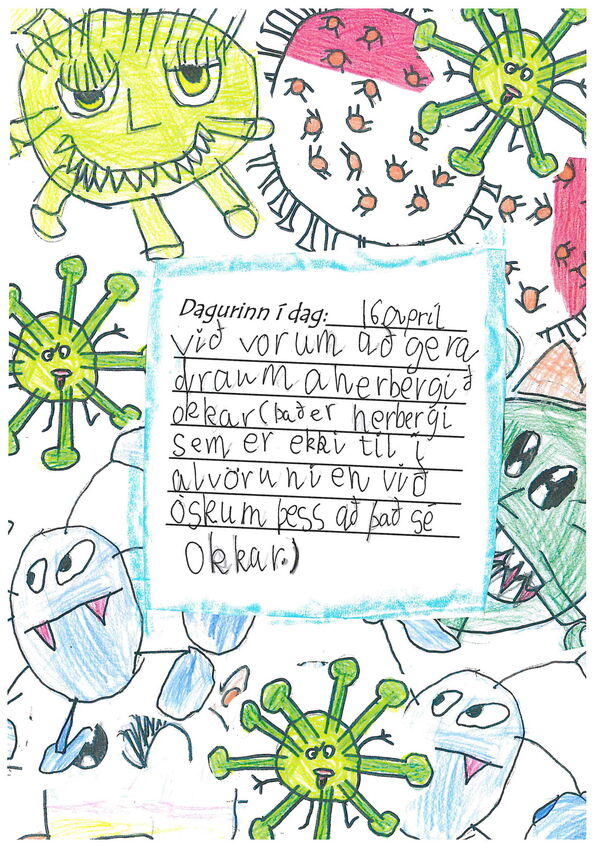 Dagurinn í dag: 16 apríl
við vorum að gera
draumaherbergið
okkar (það er herbergi
sem er ekki til í
alvöruni en við
óskum þess að það sé
okkar.)